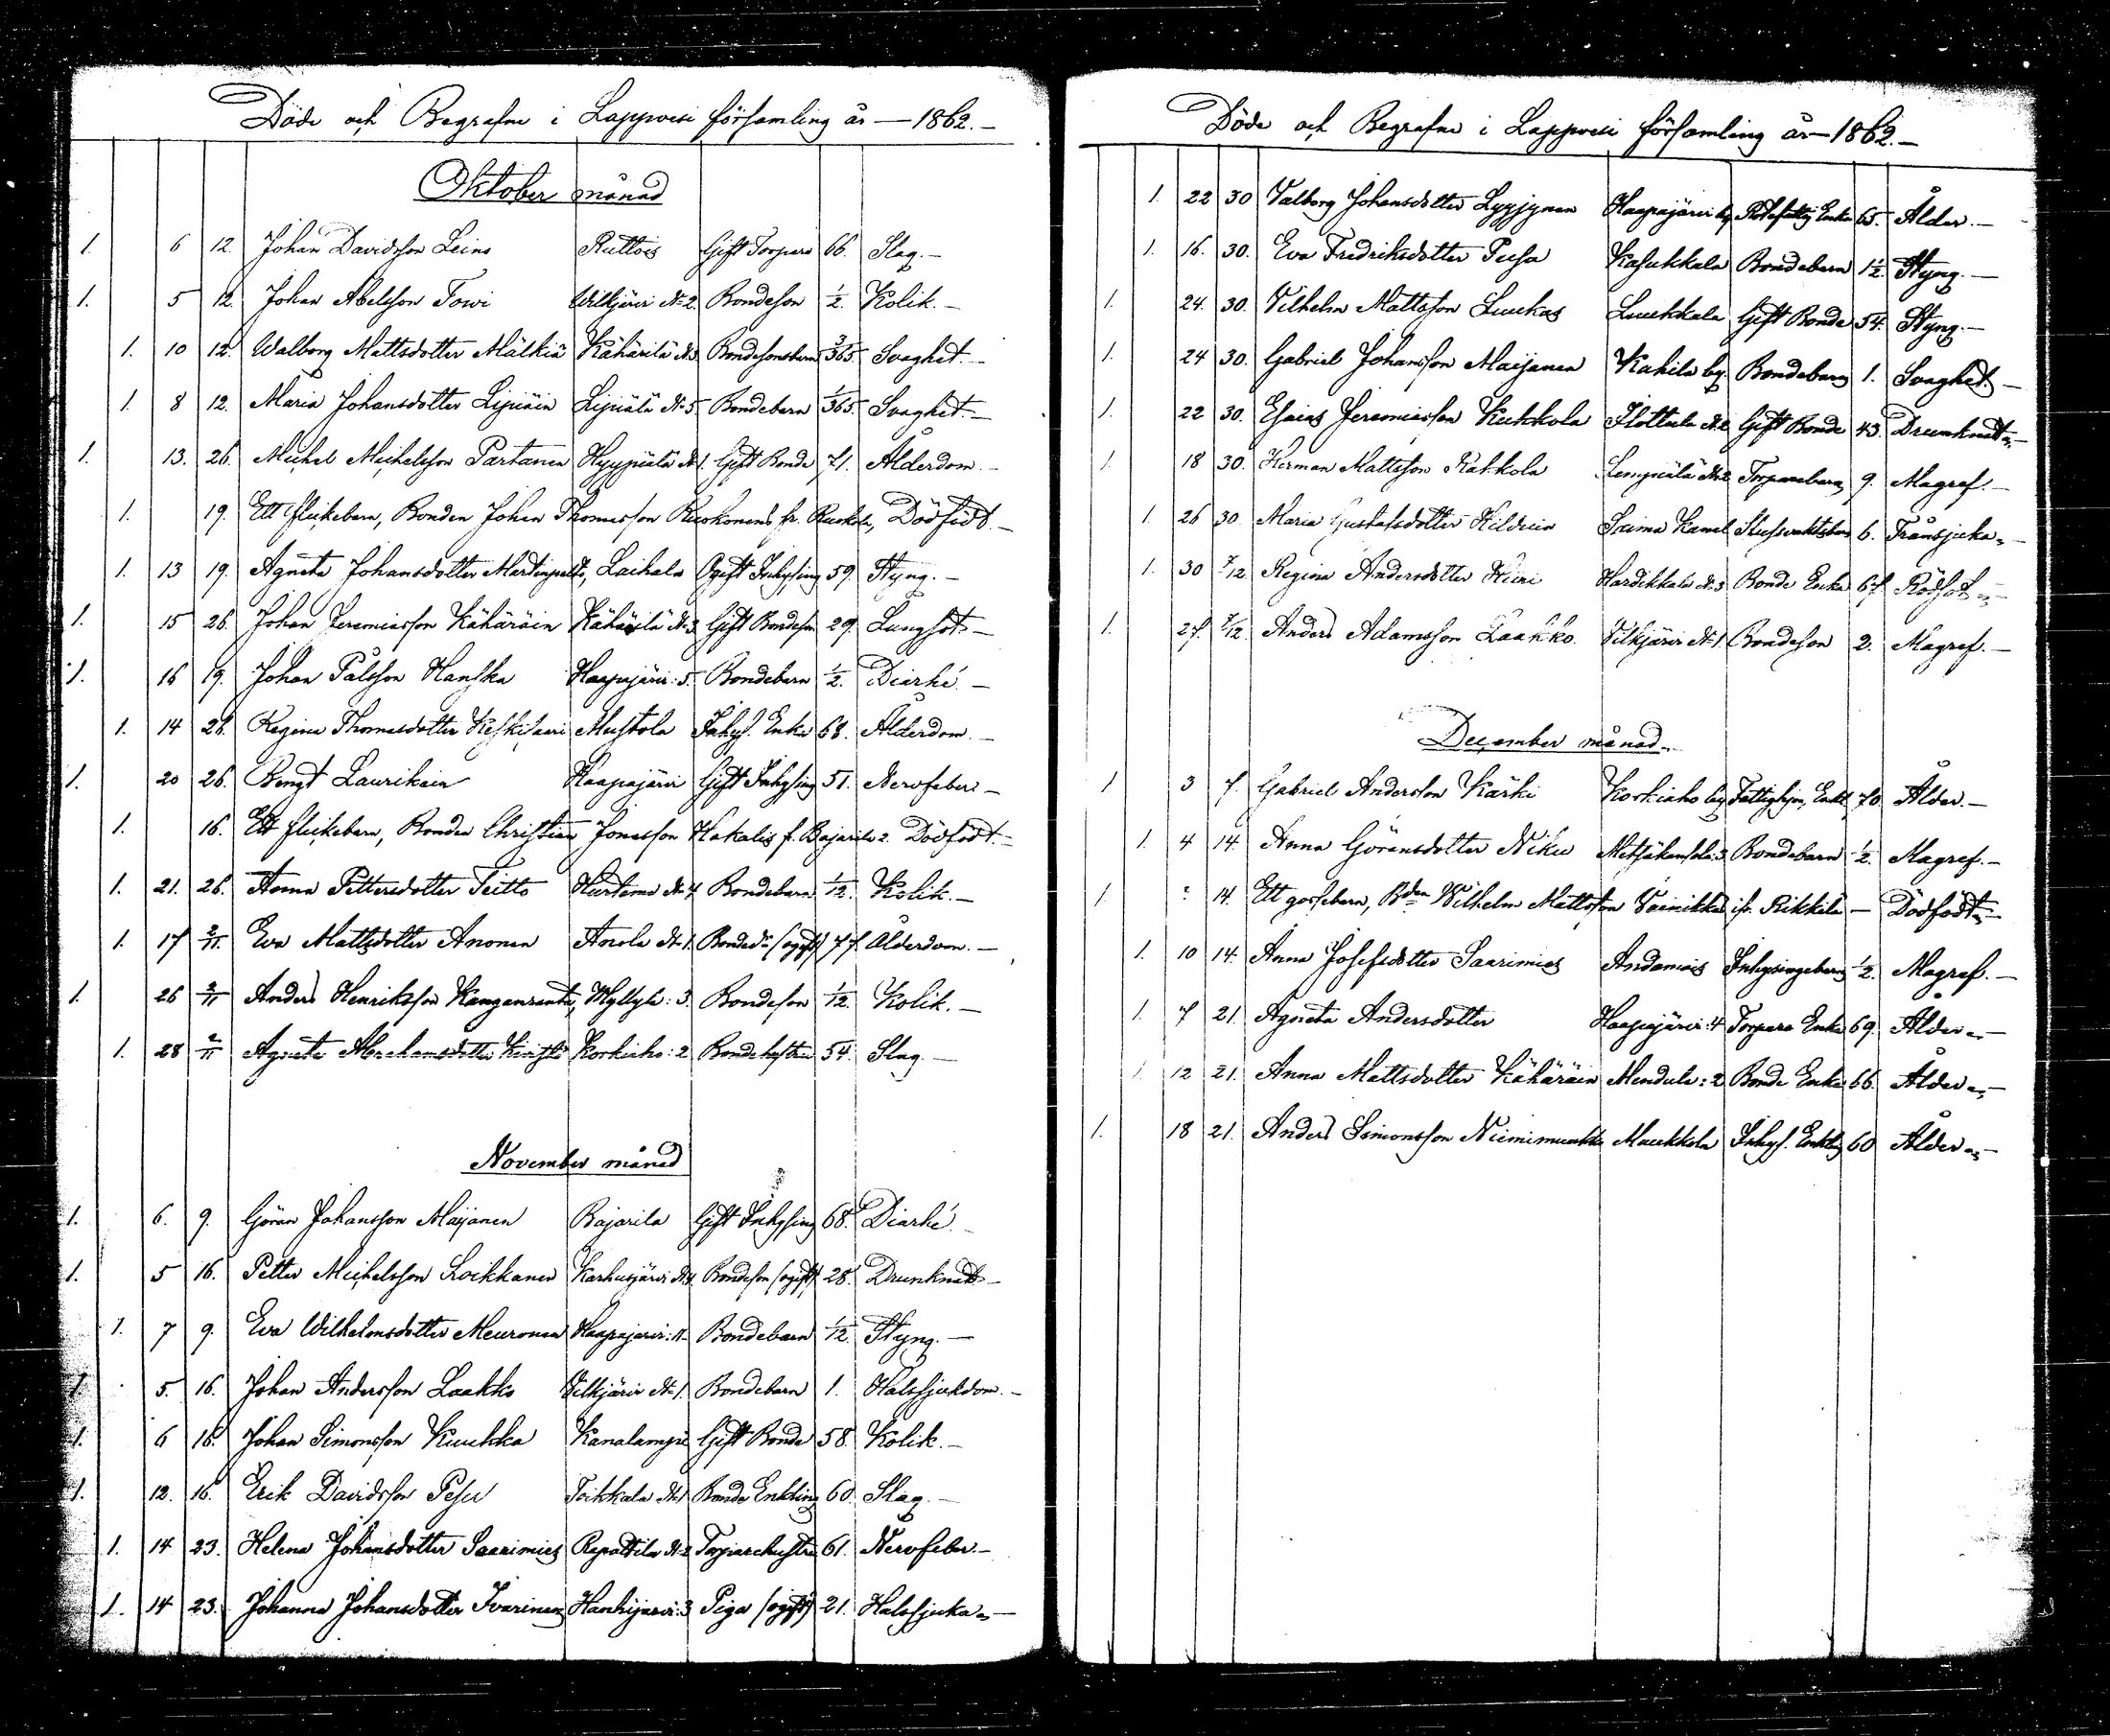 Döde och Begrafne i Lappvesi församling år — 1862.—
Oktober månad
1. 6 12. Johan Davidsson Leino Ruttois Gift Torpare 66. Slag.—
1. 5 12. Johan Abelsson Towi Wilkjärvi No 2. Bondeson 1/2. Kolik.—
1. 10 12. Walborg Mattsdotter Mälkiä Kähärilä No 3 Bondesonsbarn 3/365. Svaghet.—
1. 8 12. Maria Johansdotter Lipiäin Lipiälä No 5 Bondebarn 1/365. Svaghet.—
1. 13. 26. Michel Michelsson Partanen Hyypiälä No 1. Gift Bonde 71. Ålderdom.—
1. 19. Ett flickebarn, Bonden Johan Thomasson Ruokonens fr. Ruokola, Dödfödt.—
1. 13 19. Agneta Johansdotter Martinpelto, Laihala Ogift Inhysing 59. Styng.—
1. 15 26. Johan Jeremiasson Kähäräin Kähärilä No 3 Gift Bondeson 29. Lungsot.—
1. 16 19. Johan Pålsson Hanska Haapajärvi: 5. Bondebarn 1/2. Diarhé.—
1. 14 26. Regina Thomasdotter Keskisaari Mustola Inhys. Enka 68. Ålderdom.—
1. 20 26. Bengt Laurikain Haapajärvi Gift Inhysing 51. Nervfeber.—
1. 16. Ett flickebarn, Bonden Christian Jonasson Hakalis f. Bajarila 2. Dödfödt.—
1. 21. 26. Anna Pettersdotter Teitto Hurtama No 4 Bondebarn 1/12. Kolik.—
1. 17 2/11. Eva Mattsdotter Anonen Anola No 1. Bonded:r (ogift) 77. Ålderdom.—
1. 26 2/11 Anders Henriksson Kanganranta, Myllylä: 3. Bondeson 1/12. Kolik.—
1. 28 2/11 Agneta Abrahamsdotter Korkiaho: 2 Bondehustru 54. Slag.—
November månad
1. 6. 9. Göran Johansson Maijanen Bajarila Gift Inhysing 68. Diarhé.
1. 5 16. Petter Michelsson Lockkanen Karhusjärvi No 4. Bondeson (ogift) 28. Drunknat.—
1. 7 9. Eva Wilhelmsdotter Meuronen Haapajärvi: 11. Bondebarn 1/12. Styng.—
1. 5. 16. Johan Andersson Laakko Vilkjärvi No 1. Bondebarn 1. Halssjukdom.—
1. 6 16. Johan Simonsson Kuukka Kanalampi Gift Bonde 58. Kolik.—
1. 12. 16. Erik Davidsson Pesu Toikkala No 1 Bonde Enkling 60. Slag.—
1. 14 23. Helena Johansdotter Saarimies Rapattila No 2 Torparehustru 61. Nervfeber.—
1. 14 23. Johanna Johansdotter Ivarinen Hanhijärvi: 3 Piga (ogift) 21. Halssjuka.—
Döde och Begrafne i Lappvesi församling år — 1862.—
1. 22 30 Valborg Johansdotter Lyyjynen Haapajärvi by Enka 65. Ålder.—
1. 16. 30. Eva Fredriksdotter Pusa Kasukkala Bondebarn 1 1/2. Styng.—
1. 24. 30. Vilhelm Mattsson Luukas Luukkala Gift Bonde 54. Styng.—
1. 24 30. Gabriel Johansson Maijanen Kahila by. Bondebarn 1. Svaghet.—
1. 22 30. Esaias Jeremiasson Kukkola Ilottula No 2 Gift Bonde 43. Drunknat.—
1. 18 30. Herman Mattsson Kakkola Lempiälä No 2 Torparebarn 9. Magref.—
1. 26 30. Maria Gustafsdotter Hildein Saima Kanal Slussvaktsbarn 6. Trånsjuka.—
1. 30 7/12 Regina Andersdotter Hiiri Hardikkala No 3 Bonde Enka 67 Rödsot.—
1. 27. 7/12. Anders Adamsson Laakko. Vilkjärvi No 1 Bondeson 2. Magref.—
December månad.
1 3 7. Gabriel Andersson Kärki Korkiaho by Fattighjon, Enkl. 70 Ålder.—
1. 4 14. Anna Göransdotter Niku Metsäkansola: 3. Bondebarn 1/2. Magref.—
1. " 14. Ett gossebarn, Bden Wilhelm Mattsson Vainikka's ifr. Rikkilä — Dödfödt.—
1. 10 14. Anna Josefsdotter Saarimies Andamois Inhysingebarn 1/2. Magref.—
1. 7 21. Agneta Andersdotter Haapajärvi: 4 Torpare Enka 69. Ålder.—
1. 12 21. Anna Mattsdotter Kähäräin Mendula: 2 Bonde Enka 66. Ålder.—
1. 18 21. Anders Simonsson Niinimuukko Muukkola Inhys. Enkling 60 Ålder.—